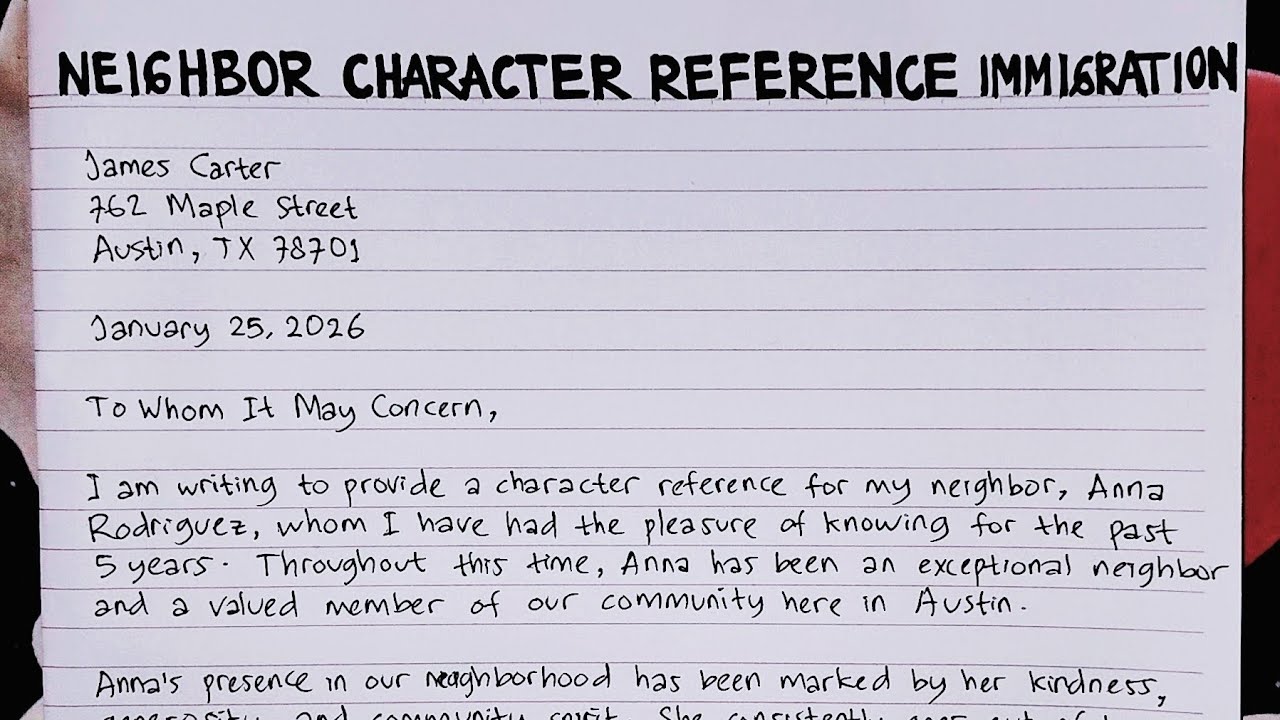 NEIGHBOR CHARACTER REFERENCE IMMIGRATION
James Carter
762 Maple Street
Austin, TX 78701
January 25, 2026
To Whom It May Concern,
I am writing to provide a character reference for my neighbor, Anna
Rodriguez, whom I have had the pleasure of knowing for the past
5 years. Throughout this time, Anna has been an exceptional neighbor
and a valued member of our community here in Austin.
Anna's presence in our neighborhood has been marked by her kindness,
generosity, and community spirit. She consistently goes out of